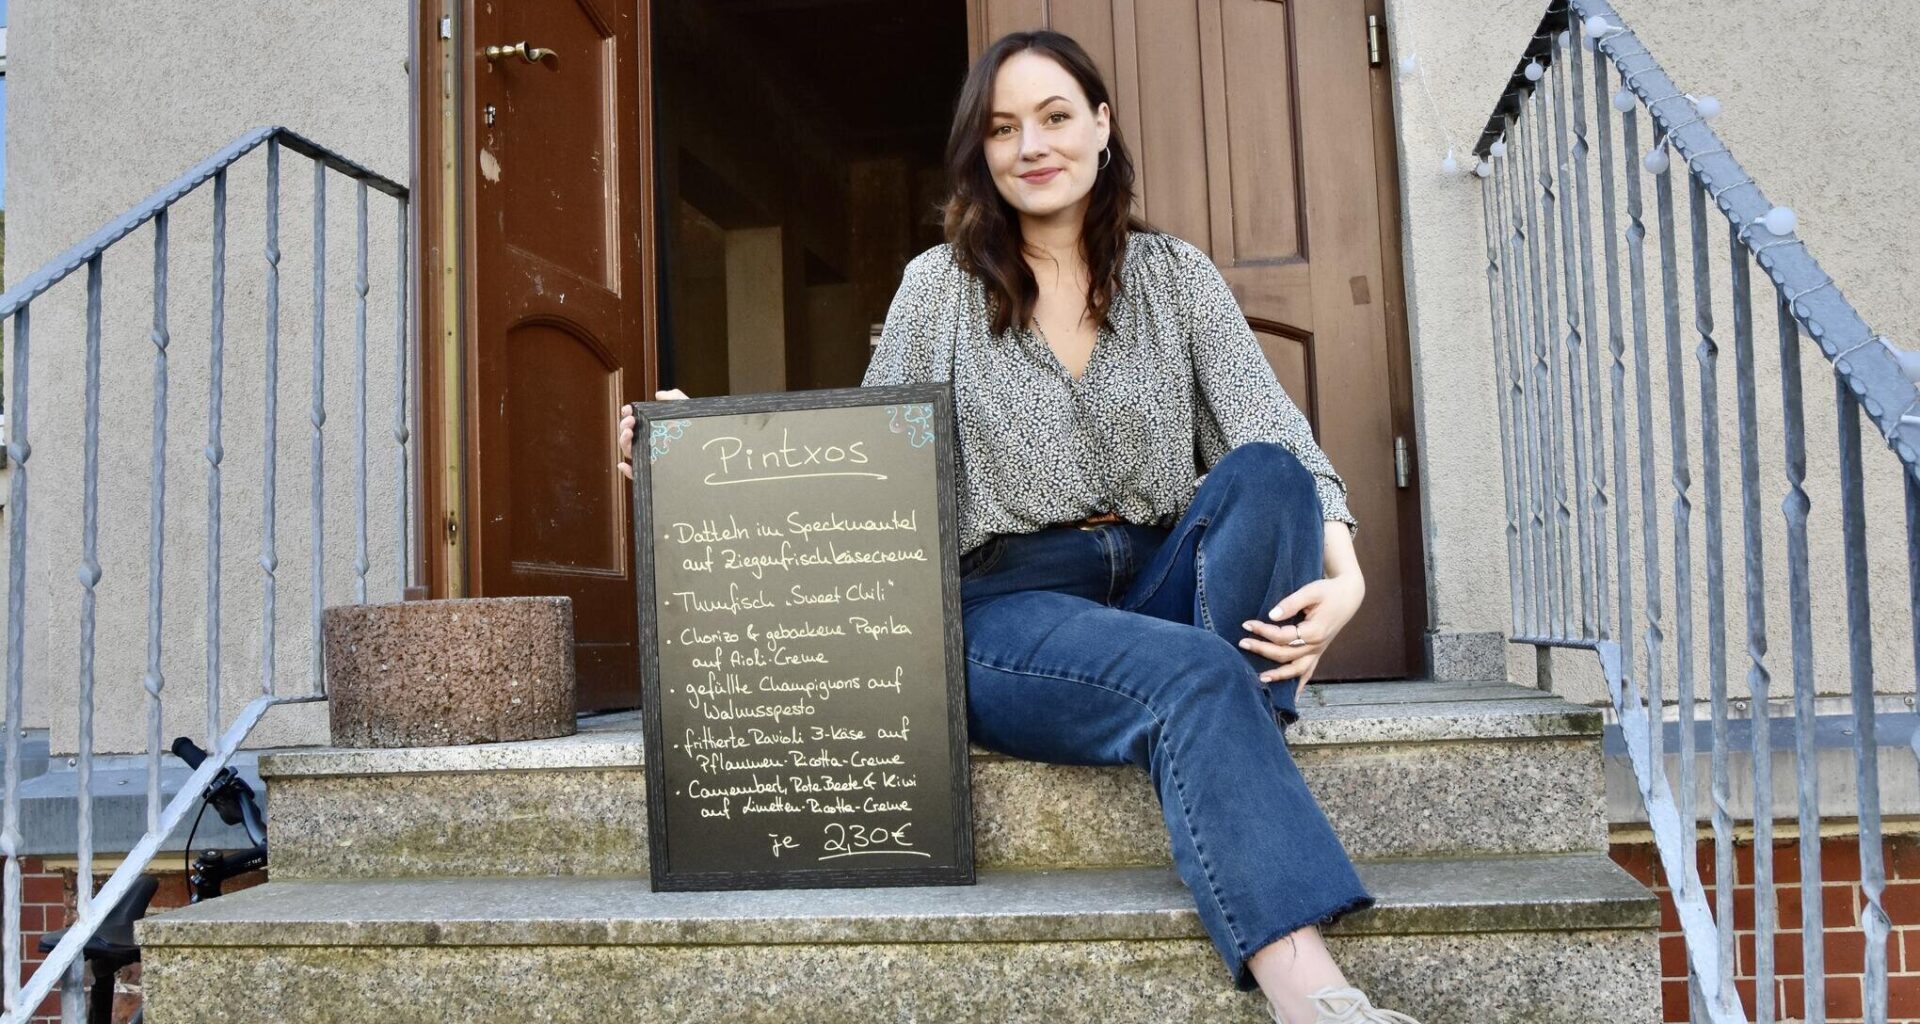 Pintxos
· Datteln im Speckmantel
auf Ziegenfrischkäsecreme
· Thunfisch „Sweet Chili"
· Chorizo & gebackene Paprika
auf Aioli-Creme
· gefüllte Champignons auf
Walnusspesto
· frittierte Ravioli 3-Käse auf
Pflaumen-Ricotta-Creme
· Camembert, Rote Beete & Kiwi
auf Limetten-Ricotta-Creme
je 2,30€